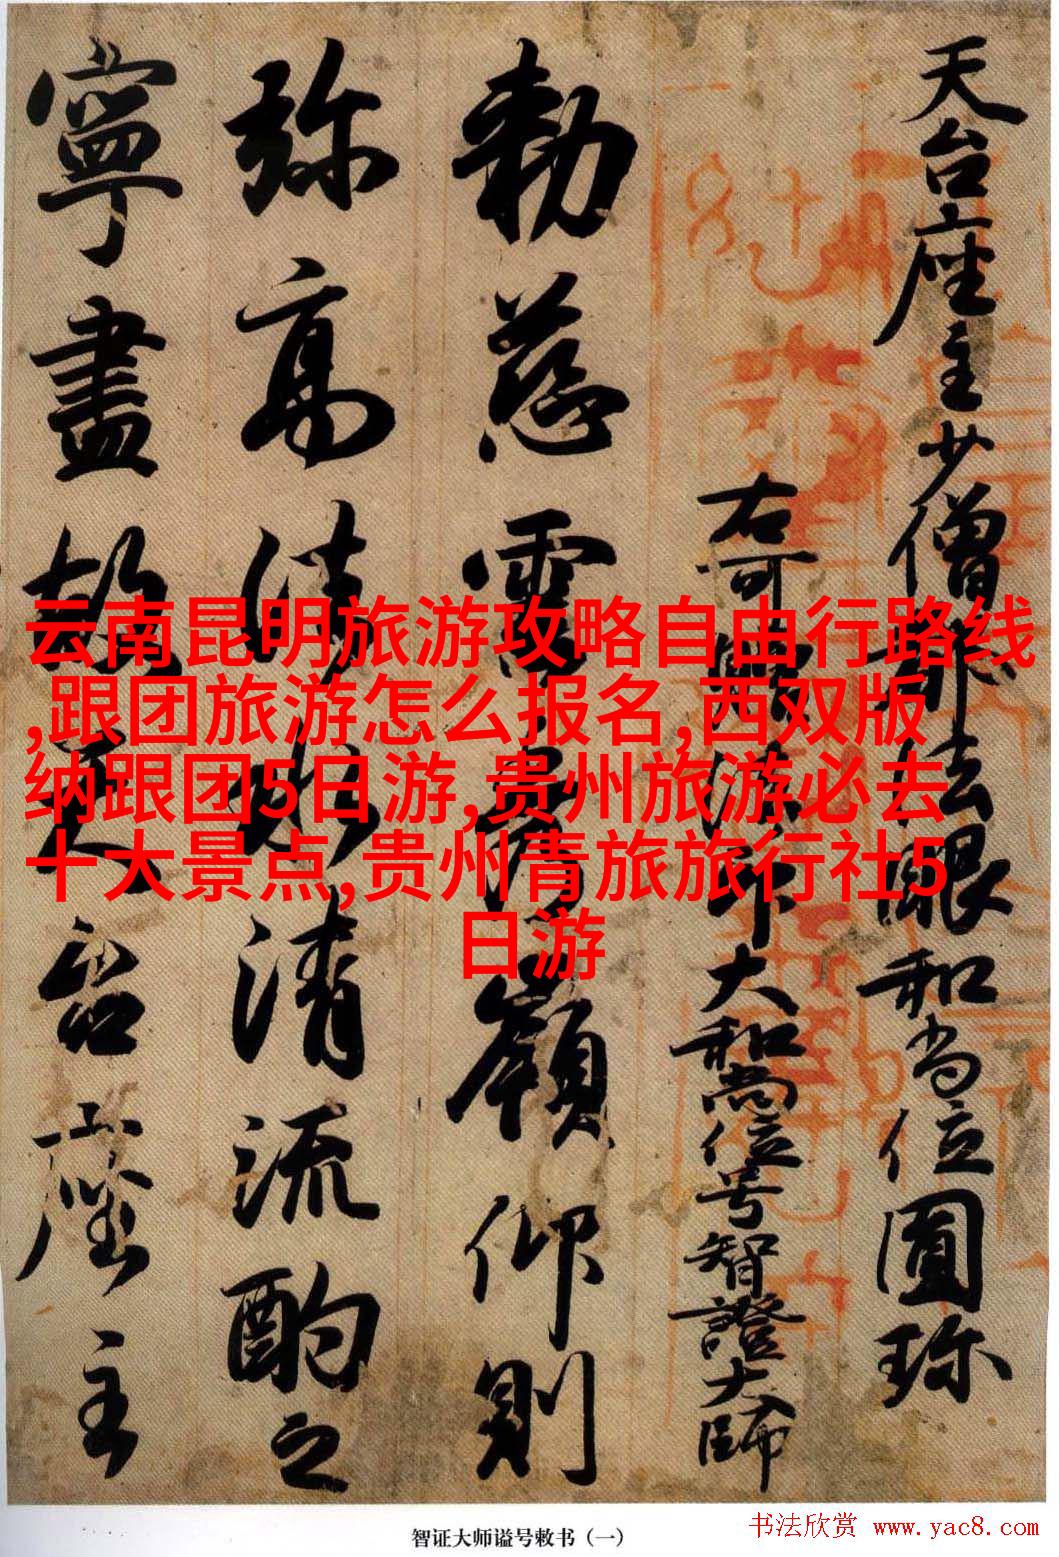 天台座主少僧都法眼和尚位圓珎
右可贈法印大和尚位号智證大師
勅慈雲秀嶺仰則
弥高法水清流酌之
寧盡故天台座主
云南昆明旅游攻略自由行路线
,跟团旅游怎么报名,西双版
纳跟团5日游,贵州旅游必去
十大景点,贵州青旅旅行社5
日游
智证大师谥号敕书（一）
书法欣赏 www.yac8.com